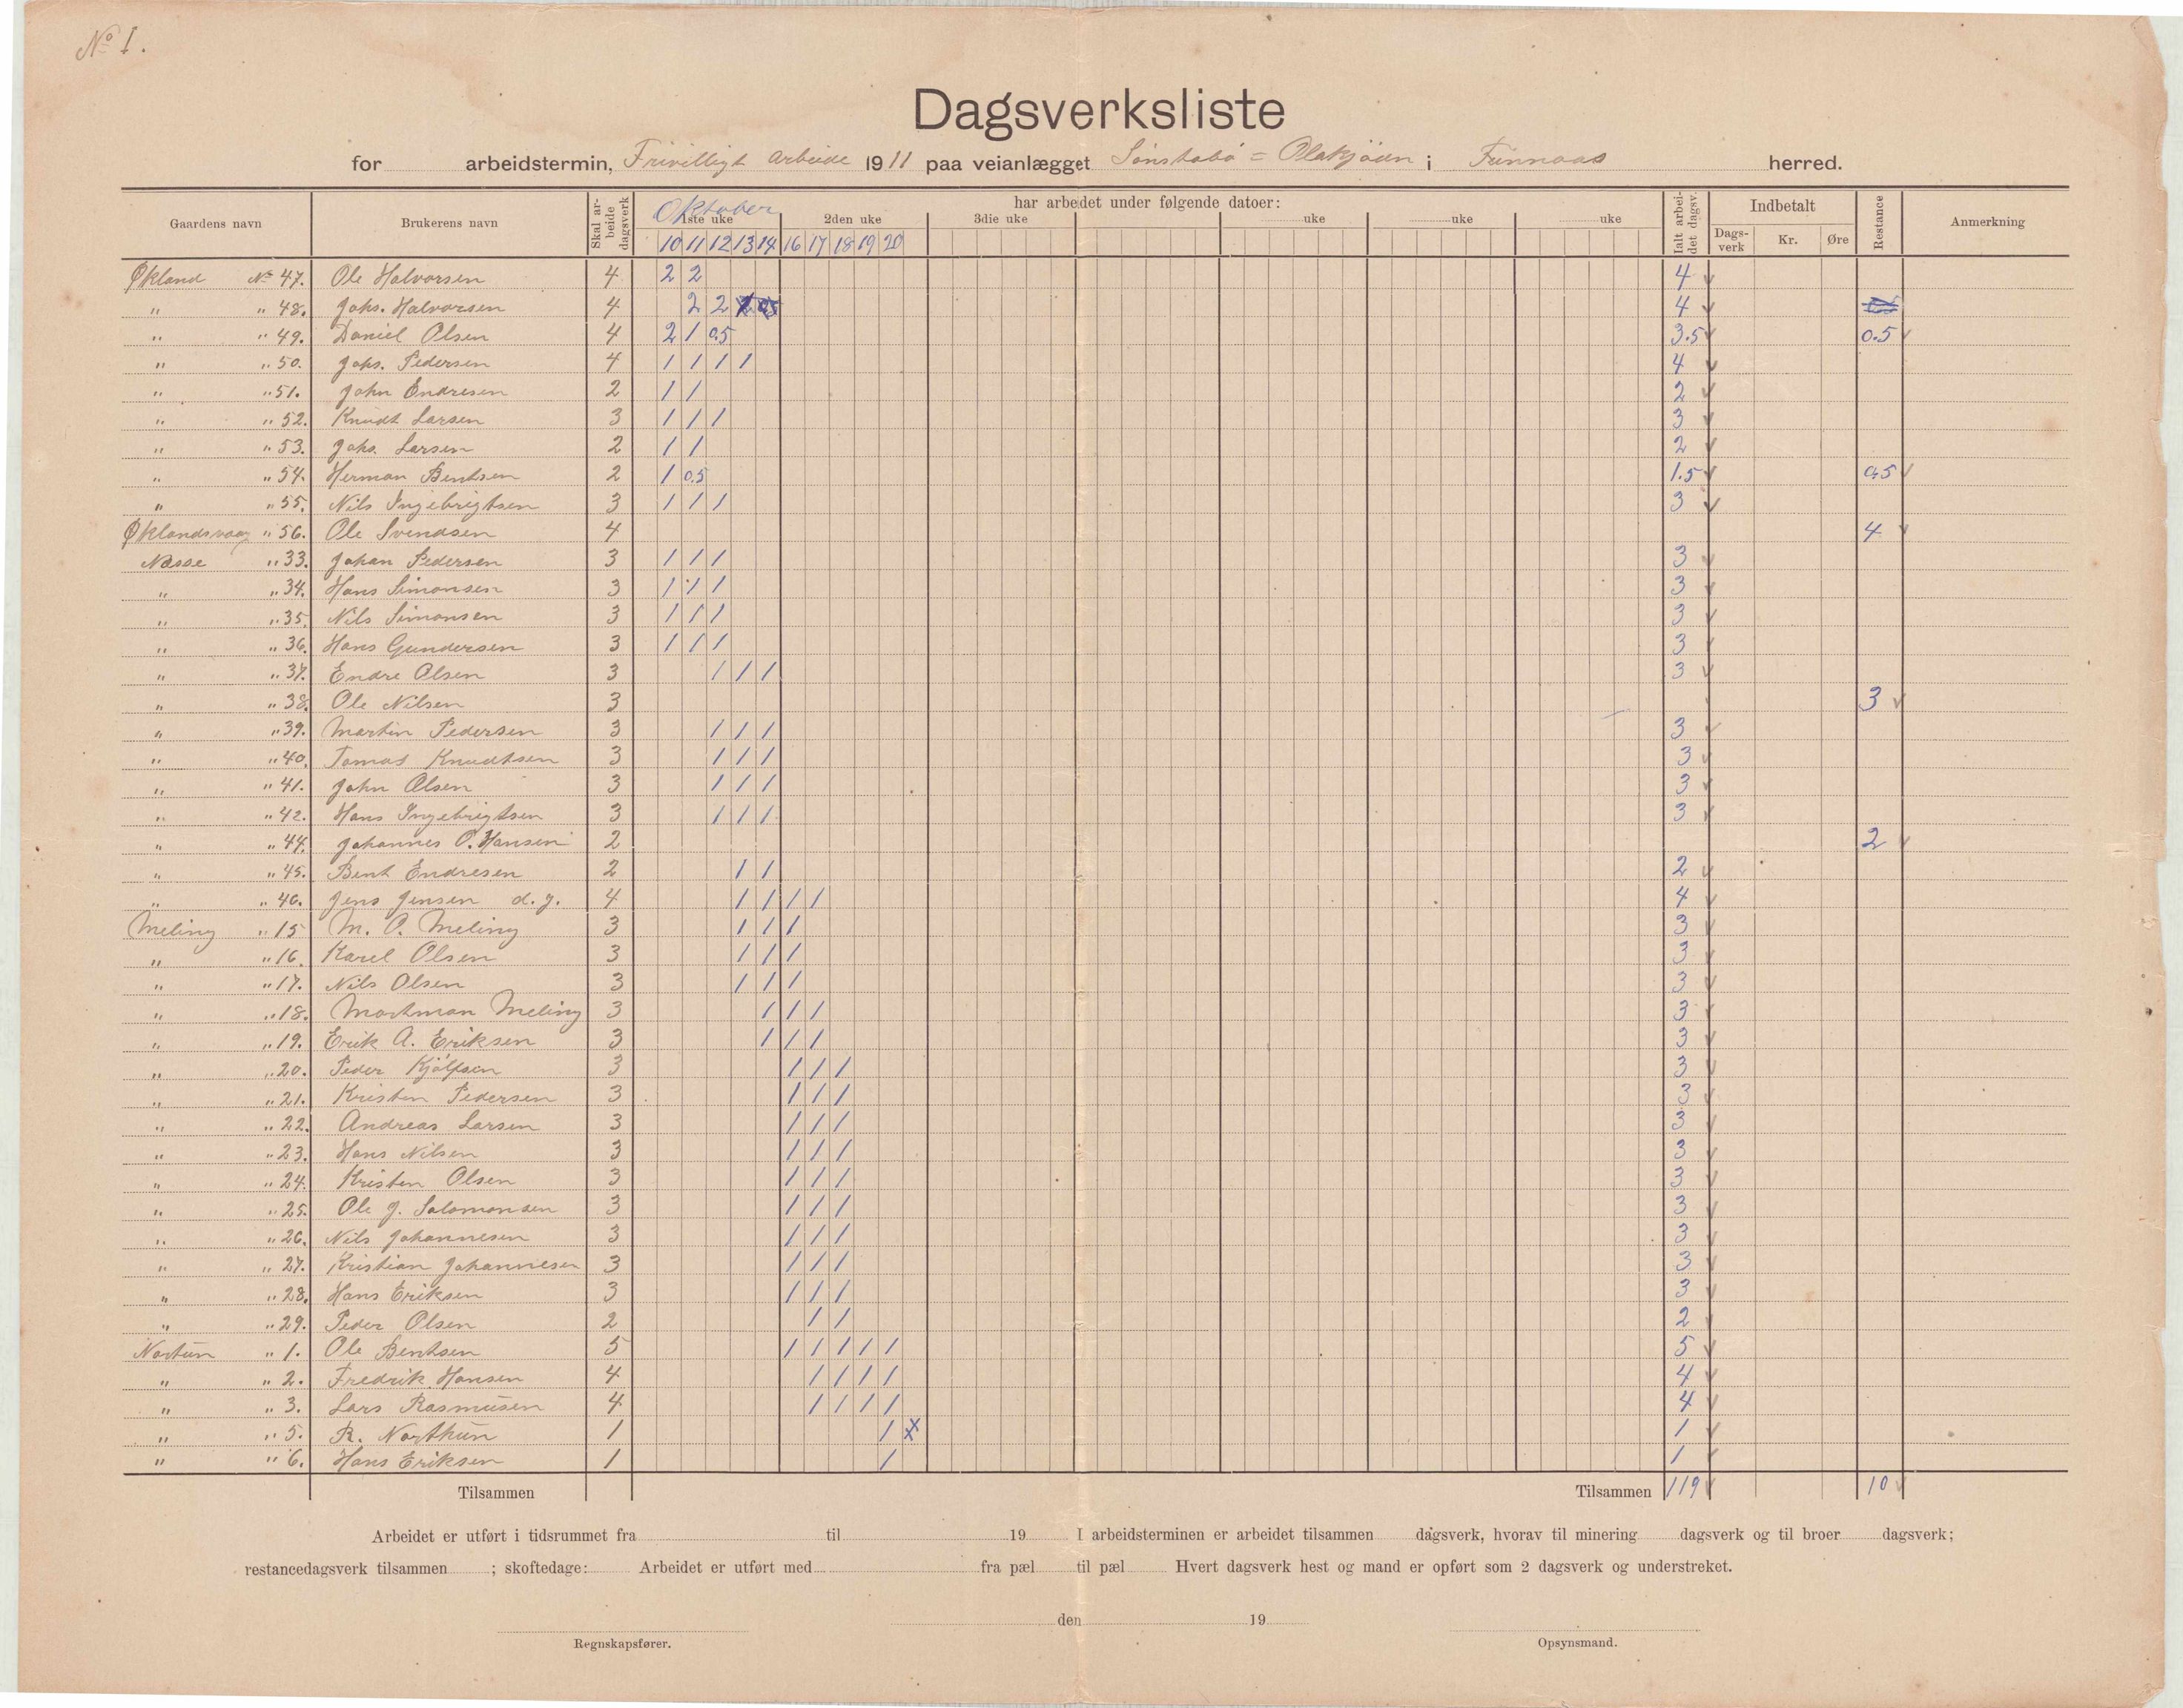 No 1.
Dagsverksliste
for arbeidstermin, Frivilligt arbeide 1911 paa veianlægget Sønstabø = Olakjödn i Finnaas herred.
Gaardens navn Brukerens navn Skal arbeide dagsverk har arbedet under følgende datoer: Ialt arbeidet dagsv. Indbetalt Restance Anmerkning
Oktober
1ste uke 2den uke 3die uke uke uke uke
Dagsverk Kr. Øre
10 11 12 13 14 16 17 18 19 20
Økland No 47. Ole Halvorsen 4 2 2 4
" " 48. Johs. Halvorsen 4 2 2 4
" " 49. Daniel Olsen 4 2 1 0.5 3.5 0.5
" " 50. Johs. Pedersen 4 1 1 1 1 4
" " 51. John Endresen 2 1 1 2
" " 52. Knudt Larsen 3 1 1 1 3
" " 53. Johs. Larsen 2 1 1 2
" " 54. Herman Bentsen 2 1 0.5 1.5 0.5
" " 55. Nils Ingebrigtsen 3 1 1 1 3
Øklandsvaag " 56. Ole Svendsen 4 4
Næsse " 33. Johan Pedersen 3 1 1 1 3
" " 34. Hans Simonsen 3 1 1 1 3
" " 35. Nils Simonsen 3 1 1 1 3
" " 36. Hans Gundersen 3 1 1 1 3
" " 37. Endre Olsen 3 1 1 1 3
" " 38. Ole Nilsen 3 3
" " 39. Martin Pedersen 3 1 1 1 3
" " 40. Tomas Knudtsen 3 1 1 1 3
" " 41. John Olsen 3 1 1 1 3
" " 42. Hans Ingebrigtsen 3 1 1 1 3
" " 44. Johannes O. Hansen 2 2
" " 45. Bent Endresen 2 1 1 2
" " 46. Jens Jensen d.y. 4 1 1 1 1 4
Meling " 15 M. O. Meling 3 1 1 1 3
" " 16. Karel Olsen 3 1 1 1 3
" " 17. Nils Olsen 3 1 1 1 3
" " 18. Mortman Meling 3 1 1 1 3
" " 19. Erik A. Eriksen 3 1 1 1 3
" " 20. Peder Kjølfsen 3 1 1 1 3
" " 21. Kristen Pedersen 3 1 1 1 3
" " 22. Andreas Larsen 3 1 1 1 3
" " 23. Hans Nilsen 3 1 1 1 3
" " 24. Kristen Olsen 3 1 1 1 3
" " 25. Ole J. Salomonsen 3 1 1 1 3
" " 26. Nils Johannesen 3 1 1 1 3
" " 27. Kristian Johannesen 3 1 1 1 3
" " 28. Hans Eriksen 3 1 1 1 3
" " 29. Peder Olsen 2 1 1 2
Nortun " 1. Ole Bentsen 5 1 1 1 1 1 5
" " 2. Fredrik Hansen 4 1 1 1 1 4
" " 3. Lars Rasmusen 4 1 1 1 1 4
" " 5. R. Northun 1 1 X 1
" " 6. Hans Eriksen 1 1 1
Tilsammen Tilsammen 119 10
Arbeidet er utført i tidsrummet fra til 19 I arbeidsterminen er arbeidet tilsammen dagsverk, hvorav til minering dagsverk og til broer dagsverk;
restancedagsverk tilsammen ; skoftedage: Arbeidet er utført med fra pæl til pæl Hvert dagsverk hest og mand er opført som 2 dagsverk og understreket.
den 19
Regnskapsfører. Opsynsmand.